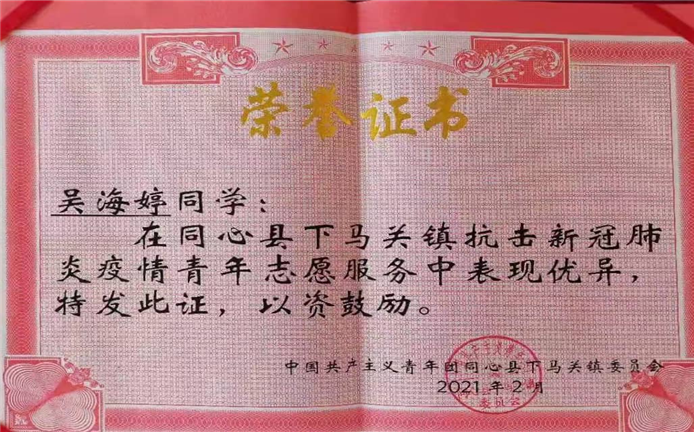 荣誉证书
吴海婷同学：
在同心县下马关镇抗击新冠肺
炎疫情青年志愿服务中表现优异，
特发此证，以资鼓励。
中国共产主义青年团同心县下马关镇委员会
2021年2月
委员会